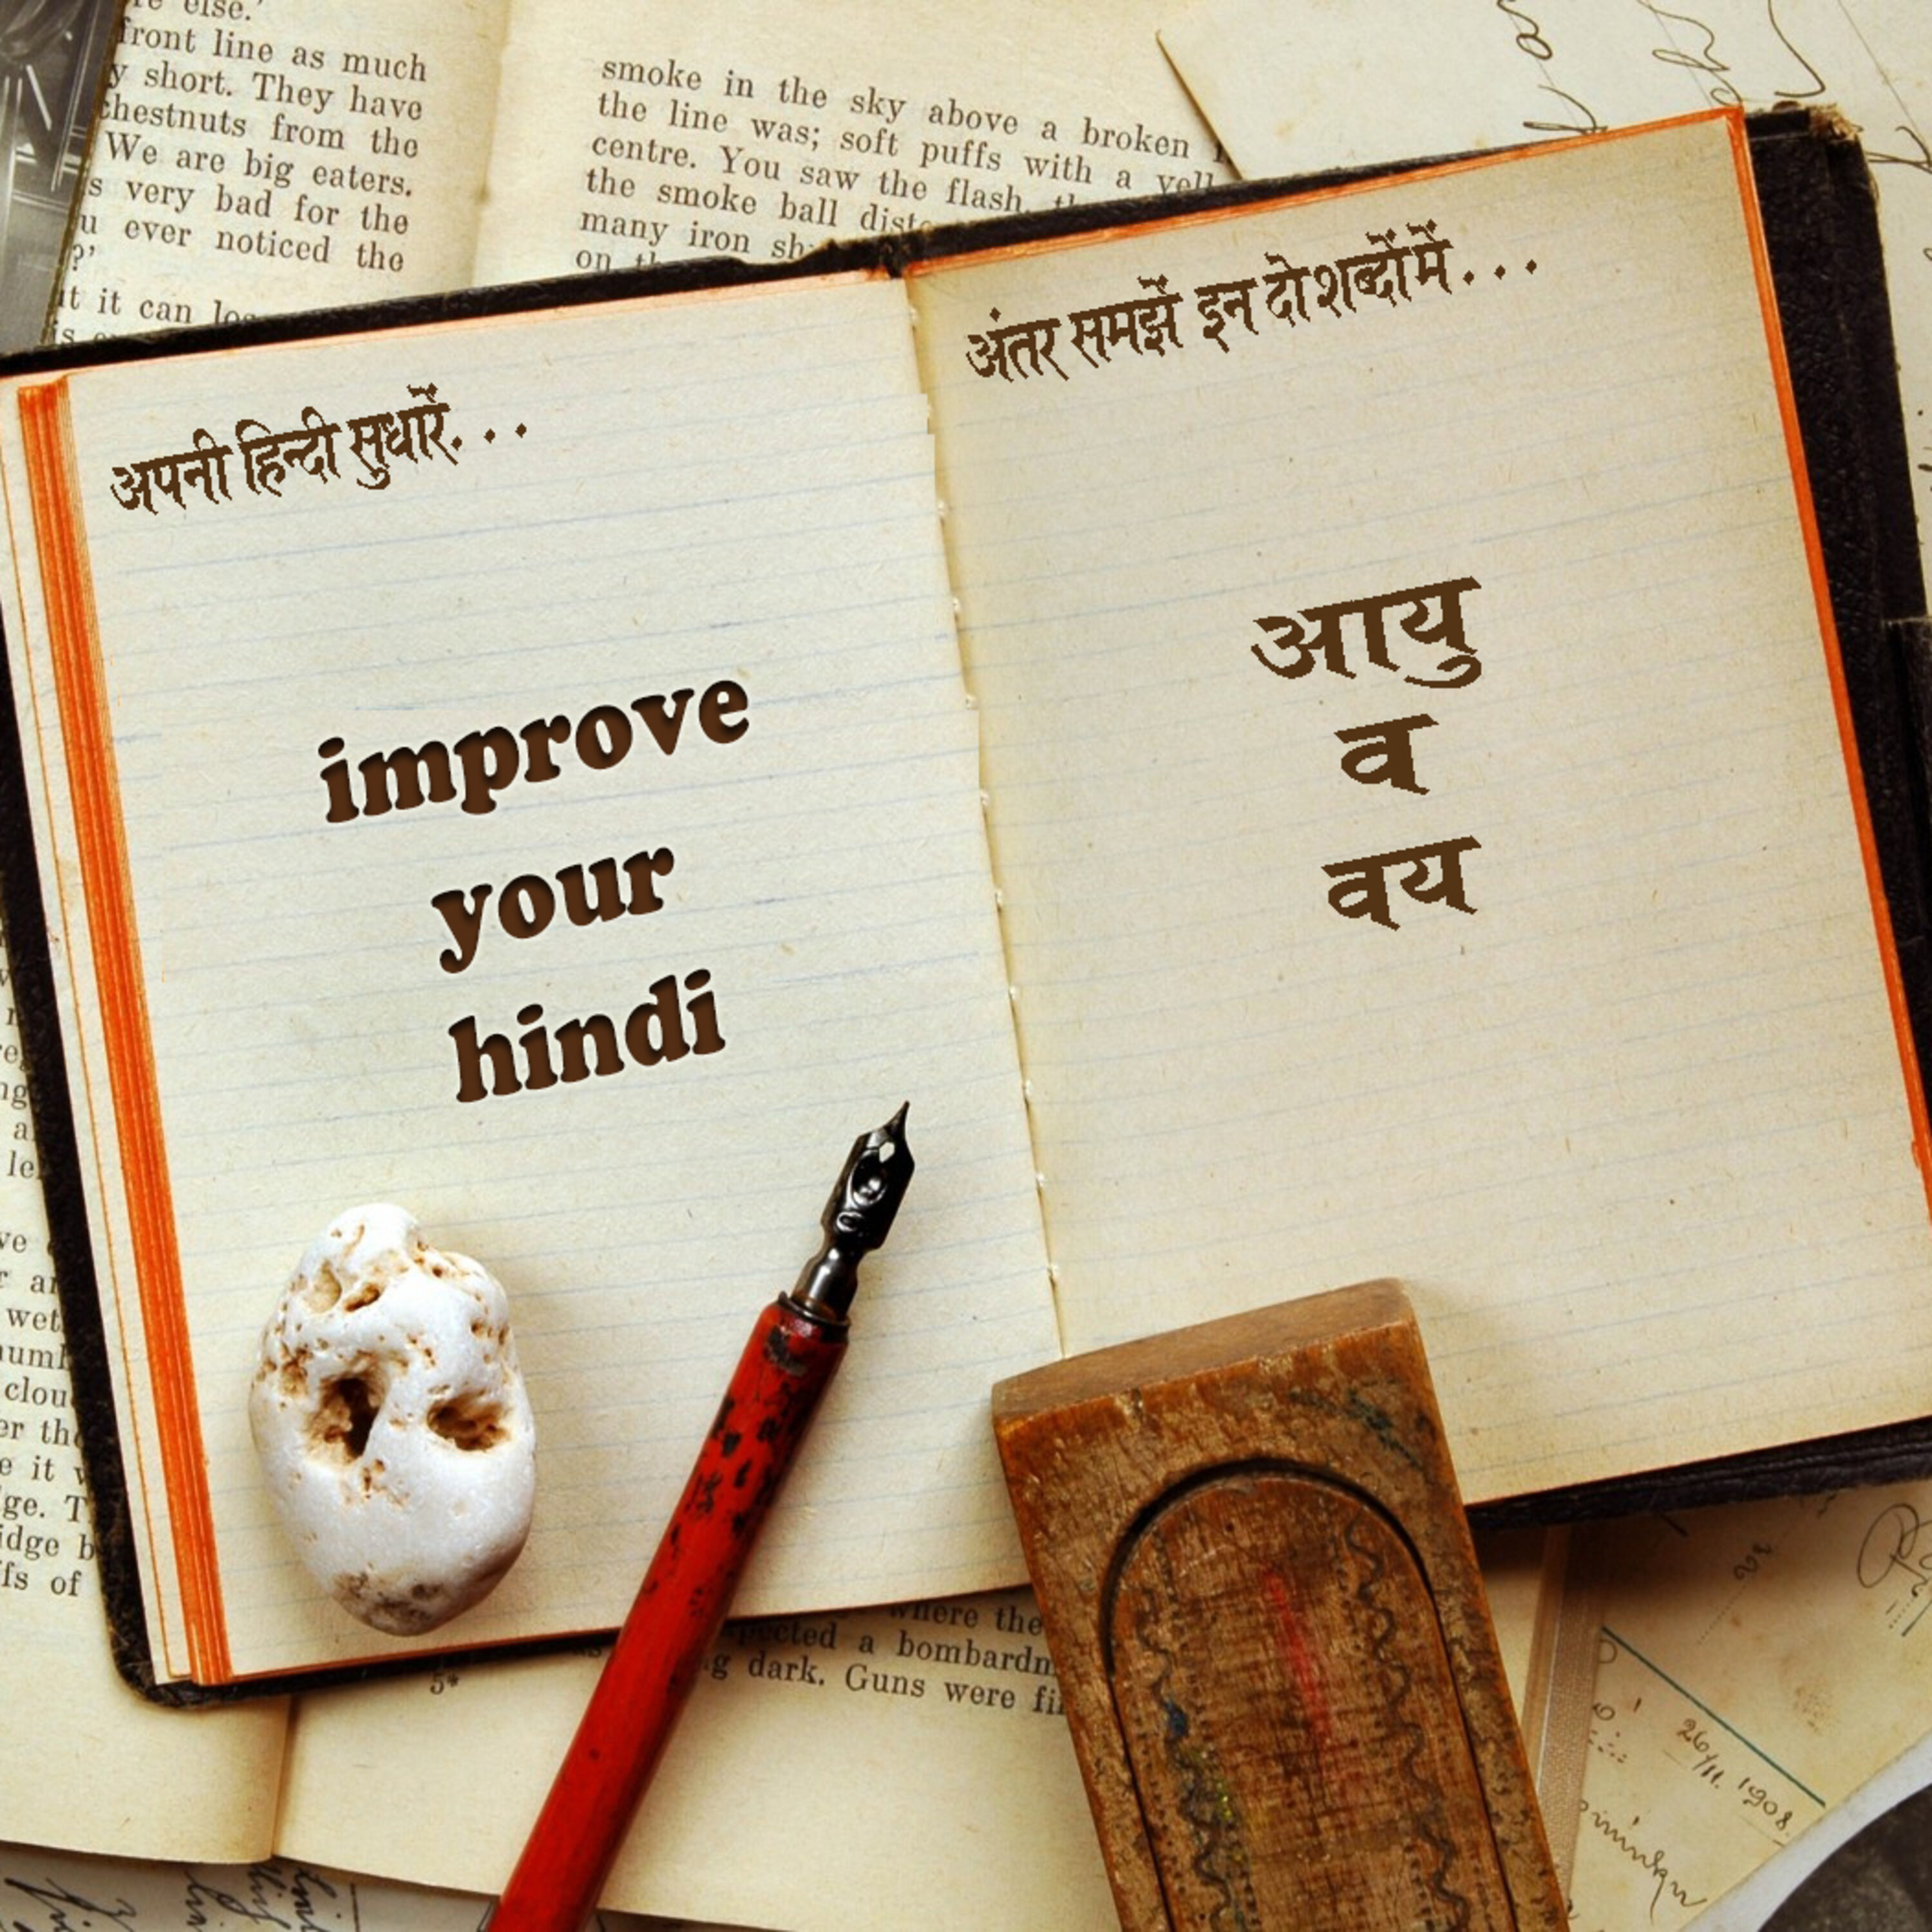 re else.'
front line as much
y short. They have
chestnuts from the
We are big eaters.
s very bad for the
u ever noticed the
?'
it it can
smoke in the sky above a broken
the line was; soft puffs with a
centre. You saw the flash,
the smoke ball
many iron
on
अपनी हिन्दी सुधारें...
improve
your
hindi
अंतर समझें इन दो शब्दों में...
आयु
व
वय
le
wet
clou
it
ge. T
idge b
fs of
where the
a bombardm
g dark. Guns were
5*
26/11. 1908.